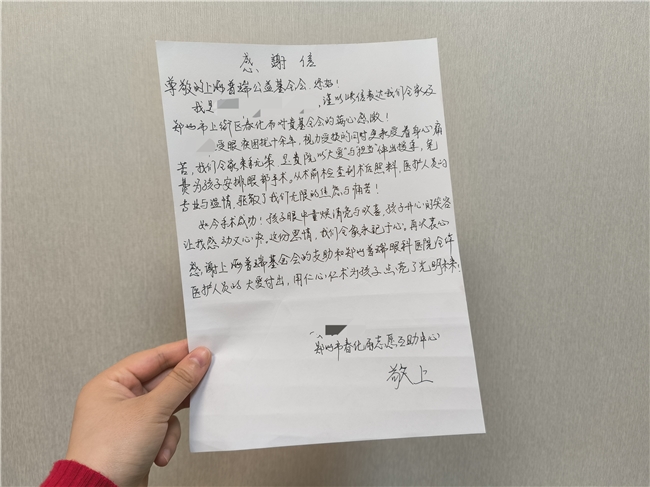 感谢信
尊敬的上海普瑞公益基金会：您好！
我是 ，谨以此信表达我们全家及
郑州市上街区春化雨对贵基金会的衷心感激！
受眼疾困扰十余年，视力受损的同时更承受着身心痛
苦，我们全家束手无策。是贵院以"大爱"与担当"伸出援手，免
费为孩子安排眼部手术。从术前检查到术后照料，医护人员的
专业与温情，驱散了我们无限的焦虑与痛苦！
如今手术成功！孩子眼中重焕清亮与改善，孩子开心的笑容
让我感动又心疼。这份恩情，我们全家永记于心。再次衷心
感谢上海普瑞基金会的支助和郑州普瑞眼科医院全体
医护人员的大爱付出，用仁心仁术为孩子点亮了光明未来！
郑州市春化雨志愿互助中心
敬上